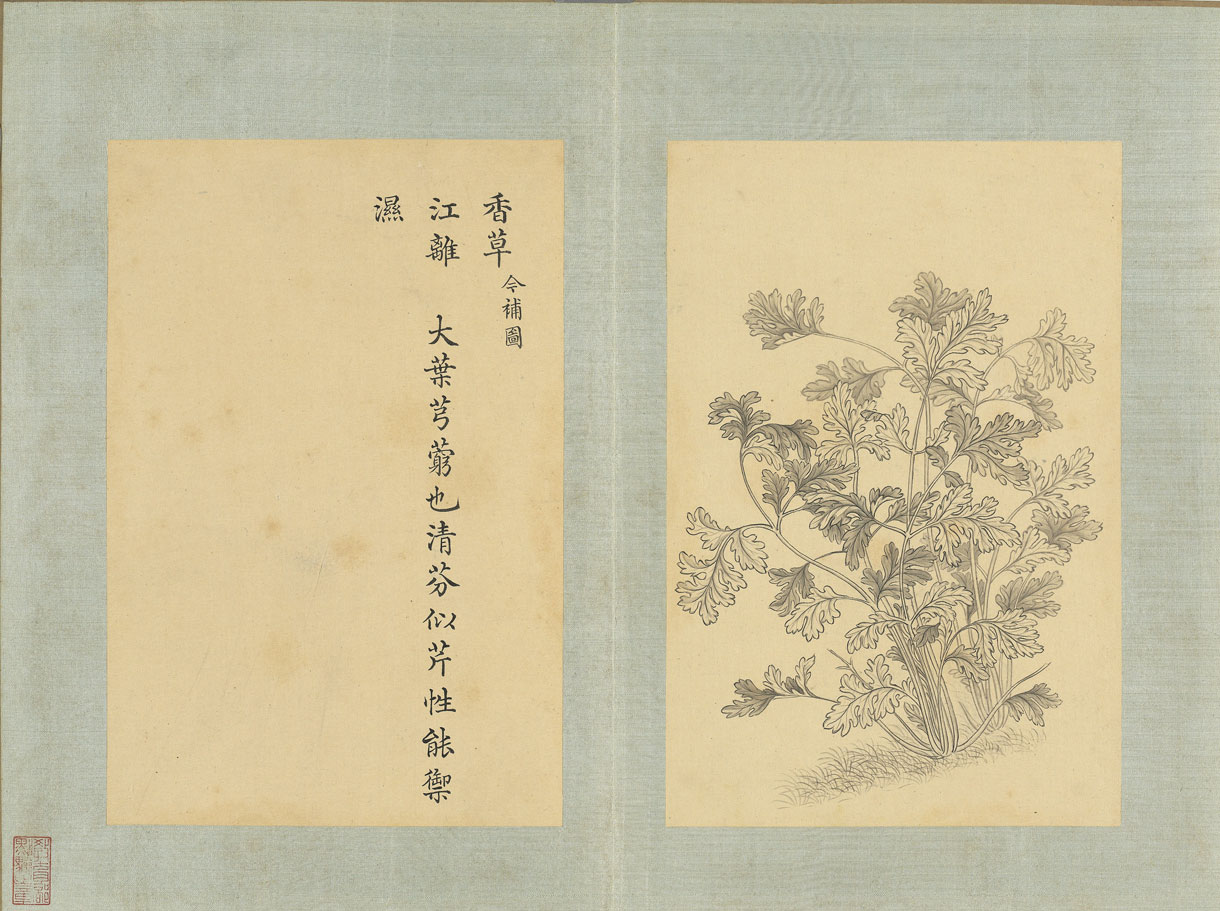 香草 今補圖
江離 大葉芎藭也清芬似芹性能禦
濕